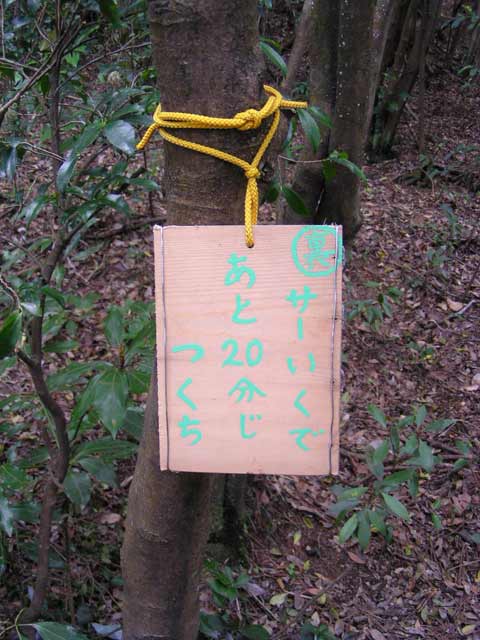 サーいくで
あと20分じ
つくち